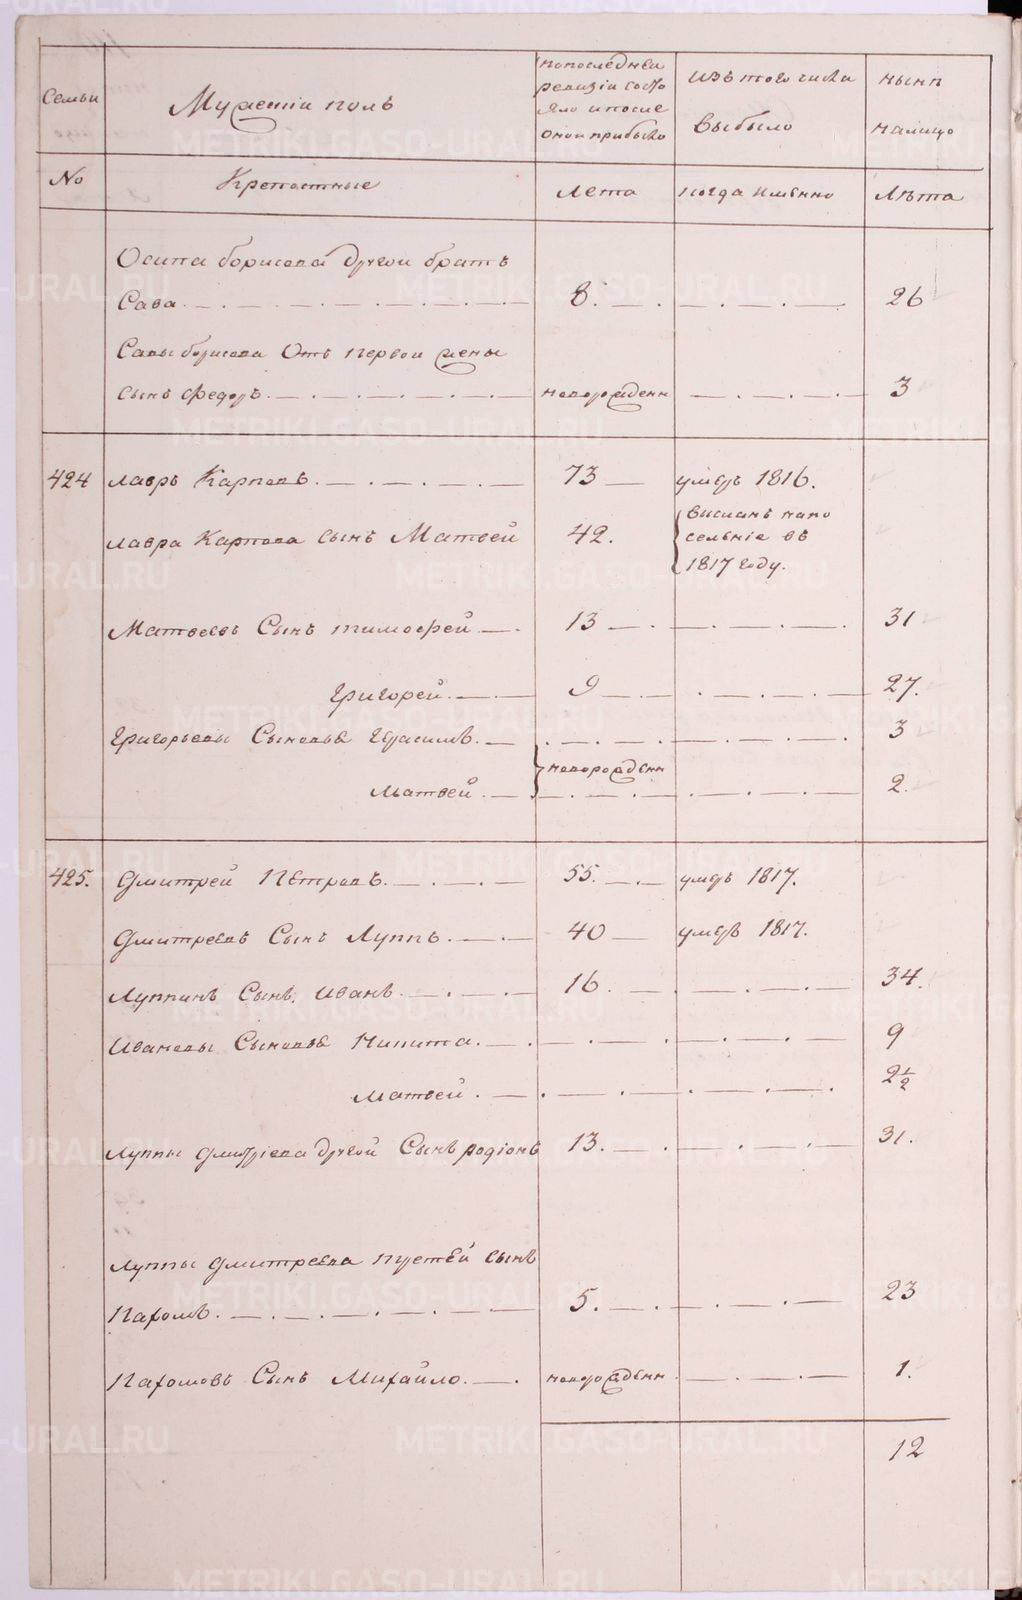 Семьи
Мужескiй полъ
по последней
ревизiи состо
яло и после
оной прибыло
изъ того числа
выбыло
нынѣ
налицо
No
Крепостные
Лета
когда именно
Лѣта
Осипа борисова другой братъ
Сава 8. 26
Савы борисова Отъ первой жены
сынъ Федоръ новорожденн 3
424 Лавръ Карповъ 73 умеръ 1816.
Лавра Карпова сынъ Матвей 42. высланъ на по
селѣнiе въ
1817 году.
Матвеевъ Сынъ тимофей 13 31
григорей 9 27.
григорьевы Сыновья герасимъ 3
новорожденн
Матвей 2.
425. Дмитрей Петровъ 55. умеръ 1817.
Дмитреевъ Сынъ Луппъ 40 умеръ 1817.
Луппинъ Сынъ Иванъ 16. 34.
Ивановы Сыновья Никита 9
Матвей 2½
Луппы дмитрiева другой Сынъ родiонъ 13. 31.
Луппы дмитреева третей сынъ
Пахомъ 5. 23
Пахомовъ Сынъ Михайло новорожденн 1.
12
METRIKI.GASO-URAL.RU